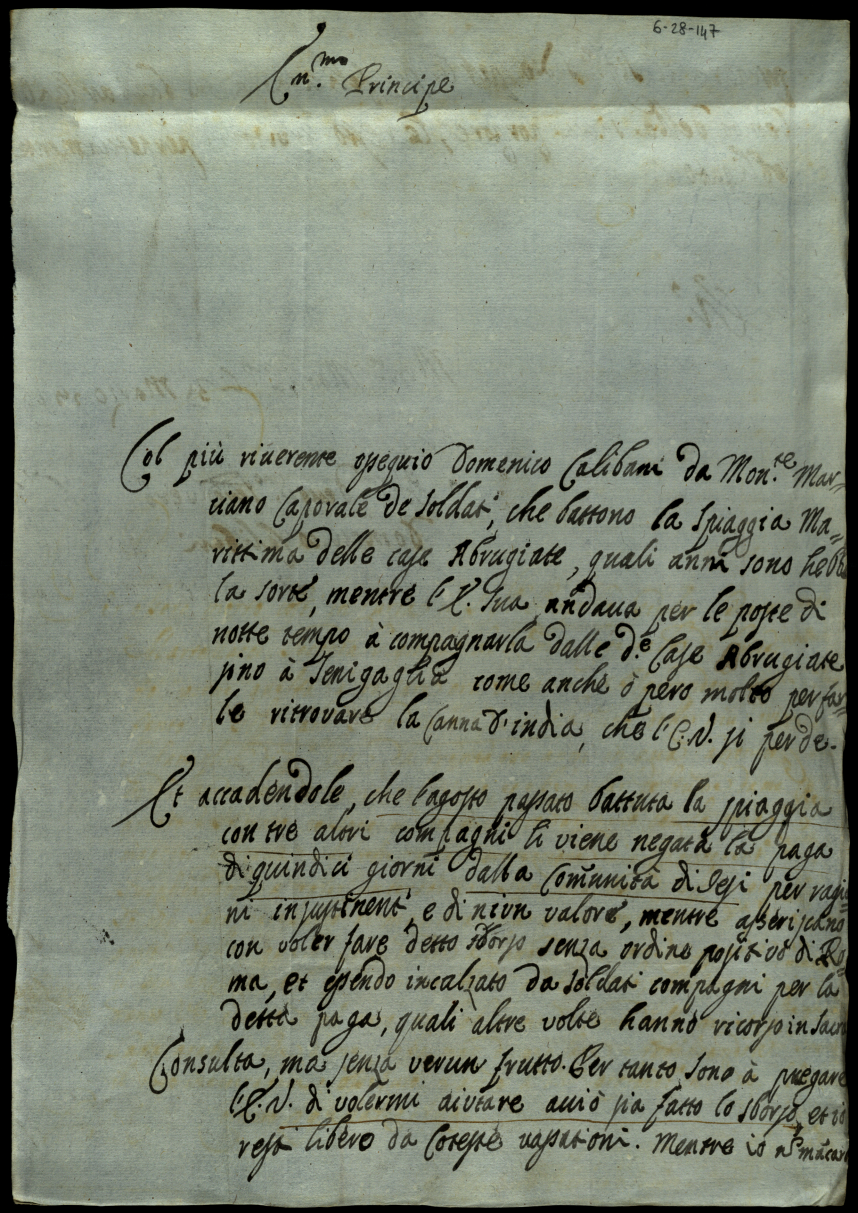 6-28-147
Em.mo Principe
Col più riuerente ossequio Domenico Calibani da Mon.te Mar=
ciano Caporale de soldati, che battono la Spiaggia Ma=
rittima delle case Abrugiate, quali anni sono hebbe
la sorte, mentre l'E. Sua andaua per le poste di
notte tempo à compagnarla dalle d.e Case Abrugiate
sino à Senigaglia come anche ò però molto per far=
le ritrovare la Canna d'india, che l'E.V. si perde.
Et accadendole, che l'agosto passato battuta la spiaggia
con tre altri compagni li viene negata la paga
di quindici giorni dalla Comunità di Jesi per ragio=
ni insussistenti, e di niun valore, mentre asseriscano
con voler fare detto sborso senza ordine positivo di Ro=
ma, et essendo incalzato da soldati compagni per la
detta paga, quali altre volte hanno ricorso in Sacra
Consulta, ma senza verun frutto. Per tanto sono à pregare
l'E.V. di volermi aiutare acciò sia fatto lo sborso, et io
resti libero da coteste vassationi. Mentre io